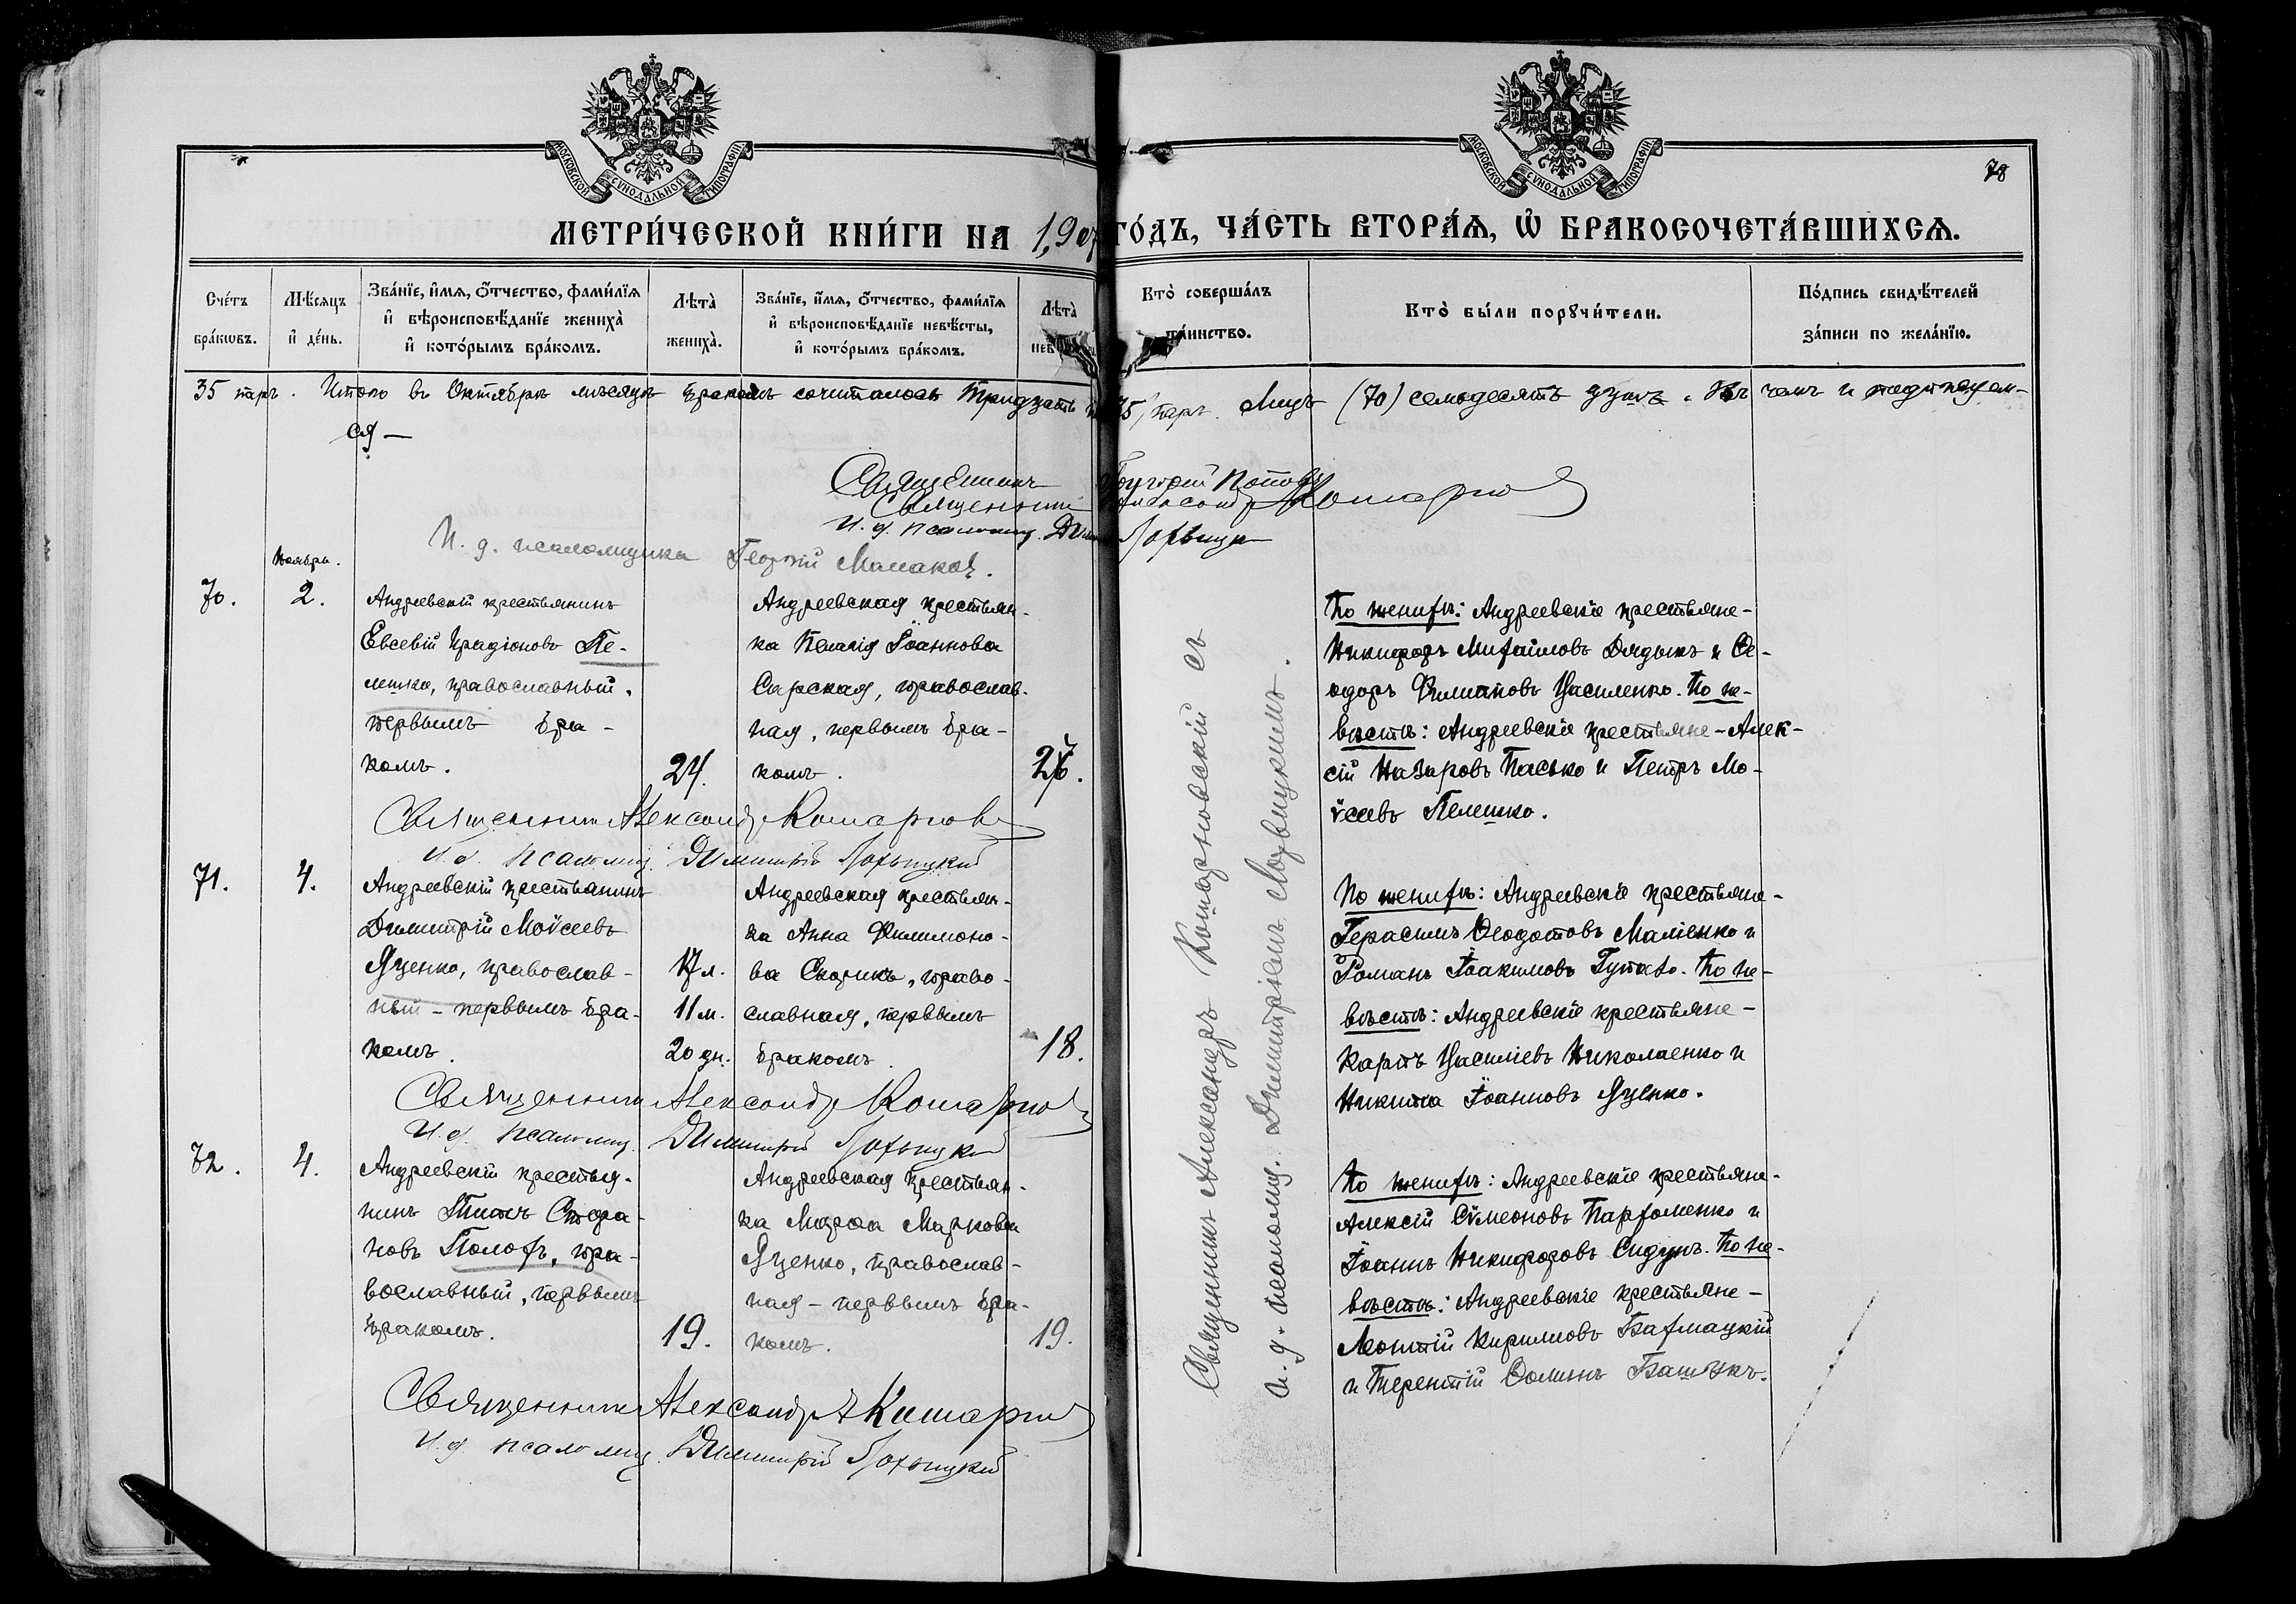 МОСКОВСКОЙ СѴНОДАЛЬНОЙ ТИПОГРАФІИ
МОСКОВСКОЙ СѴНОДАЛЬНОЙ ТИПОГРАФІИ
78
МЕТРИ́ЧЕСКОЙ КНИ́ГИ НА 1907 ГО́ДЪ, ЧА́СТЬ ВТОРА́Я, Ѽ БРАКОСОЧЕТА́ВШИХСЯ.
Сче́тъ бра́кѡвъ.
Мѣ́сяцъ и҆ де́нь.
Зва́нїе, и҆́мя, ѻ҆́тчество, фами́лїя
и҆ вѣроисповѣ́данїе жениха̀
и҆ кото́рымъ бра́комъ.
Лѣта̀ жениха̀.
Зва́нїе, и҆́мя, ѻ҆́тчество, фами́лїя
и҆ вѣроисповѣ́данїе невѣ́сты,
и҆ кото́рымъ бра́комъ.
Лѣта̀
Кто̀ соверша́лъ
та́инство.
Кто̀ бы́ли порꙋчи́тели.
По́дпись свидѣ́телей
за́писи по жела́нїю.
35 паръ. Итого въ Октябрѣ мѣсяцѣ бракомъ сочиталось тридцать 35 паръ. Лицъ (70) семьдесятъ душъ. Въ чемъ и подписуем-
ся —
Священникъ Григорій Поповъ
Священникъ Александръ Комарно
И. д. псаломщ. Дим Лозвицк
И. д. псаломщика Георгій Мамака
Ноябрь.
70.
2.
Андреевскій крестьянинъ
Евсевій Иродіоновъ Пе-
лешко, православный.
первымъ бра-
комъ.
24.
Андреевская крестьян-
ка Пелагія Іоаннова
Сирская, православ-
ная, первымъ бра-
комъ.
По женихѣ: Андреевскіе крестьяне-
Никифоръ Михайловъ Дядыкъ и Ѳе-
одоръ Василенко. По не-
вѣстѣ: Андреевскіе крестьяне - Алек-
сій Назаровъ Пасько и Петръ Мо-
ѵсеевъ Пелешко.
Священникъ Александръ Комарнов
И. д. псаломщ. Димитрій Лозвицкій
71.
4.
Андреевскій крестьянинъ
Димитрій Моѵсеевъ
Яценко, православ-
ный - первымъ бра-
комъ.
17 л.
11 м.
20 дн.
Андреевская крестьян-
ка Анна Филимоно-
ва Скорикъ, право-
славная, первымъ
бракомъ.
18.
По женихѣ: Андреевскіе крестьяне-
Герасимъ Ѳеодотовъ Маліенко и
Романъ Іоакимовъ По не-
вѣстѣ: Андреевскіе крестьяне -
Карпъ Василіевъ Николаенко и
Никита Іоанновъ Яценко.
Священникъ Александръ Комарно
И. д. псаломщ. Димитрій Лозвицкій
72.
4.
Андреевскій крестья-
нинъ Титъ Стефа-
новъ Полохъ, пра-
вославный, первымъ
бракомъ.
19.
Андреевская крестьян-
ка Марѳа Маркова
Яценко, православ-
ная - первымъ бра-
комъ.
19.
По женихѣ: Андреевскіе крестьяне-
Алексій Сѵмеоновъ Пархоменко и
Іоаннъ Никифоровъ Сидунъ. По не-
вѣстѣ: Андреевскіе крестьяне -
Леонтій Кириловъ Бахмацкій
и Терентій Ѳоминъ
Священникъ Александръ Комарно
И. д. псаломщ. Димитрій Лозвицкій
Священникъ Александръ Комарновскій съ
и. д. псаломщ. Димитріемъ Лозвицкимъ.